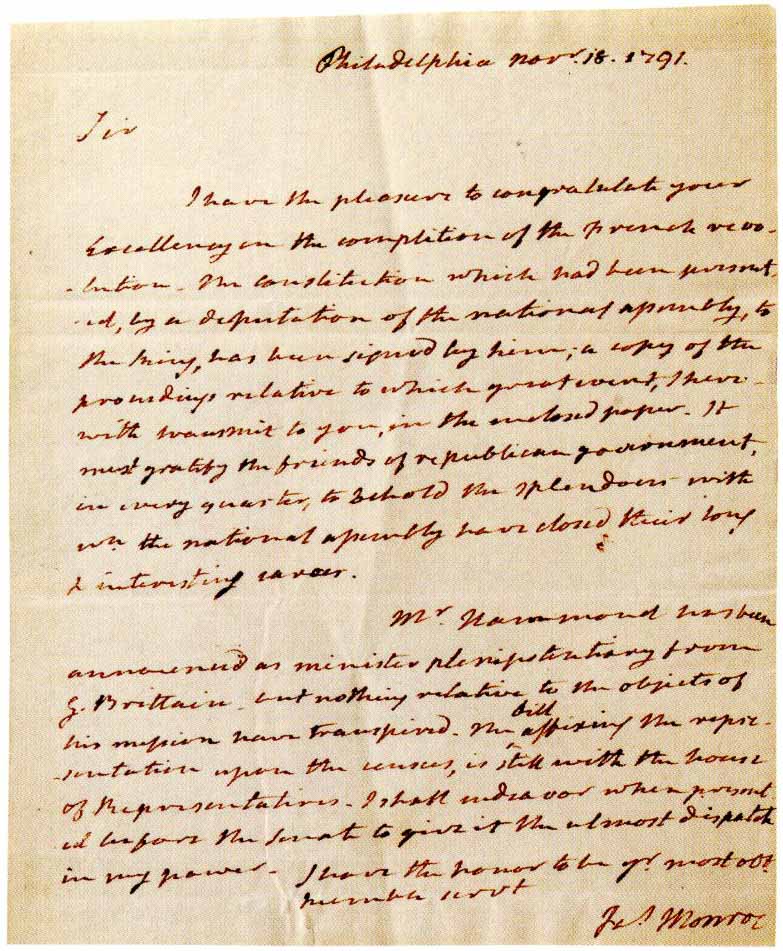 Philadelphia Novr. 18. 1791.
Sir
I have the pleasure to congratulate your
Excellency on the completion of the French revo-
-lution. The constitution which had been present-
-ed, by a deputation of the national assembly, to
the King, has been signed by him; a copy of the
proceedings relative to which great event, I here-
with transmit to you, in the enclosed paper. It
must gratify the friends of republican government,
in every quarter, to behold the splendour with
wh. the national assembly have closed their long
& interesting career.
Mr. Hammond has been
announced as minister plenipotentiary from
G. Brittain and nothing relative to the objects of
his mission have transpired. The bill affixing the repre-
-sentation upon the census, is still with the house
of Representatives. I shall endeavor when present-
ed before the Senate to give it the utmost dispatch
in my power. I have the honor to be yr. most obt.
humble servt
Jas. Monroe